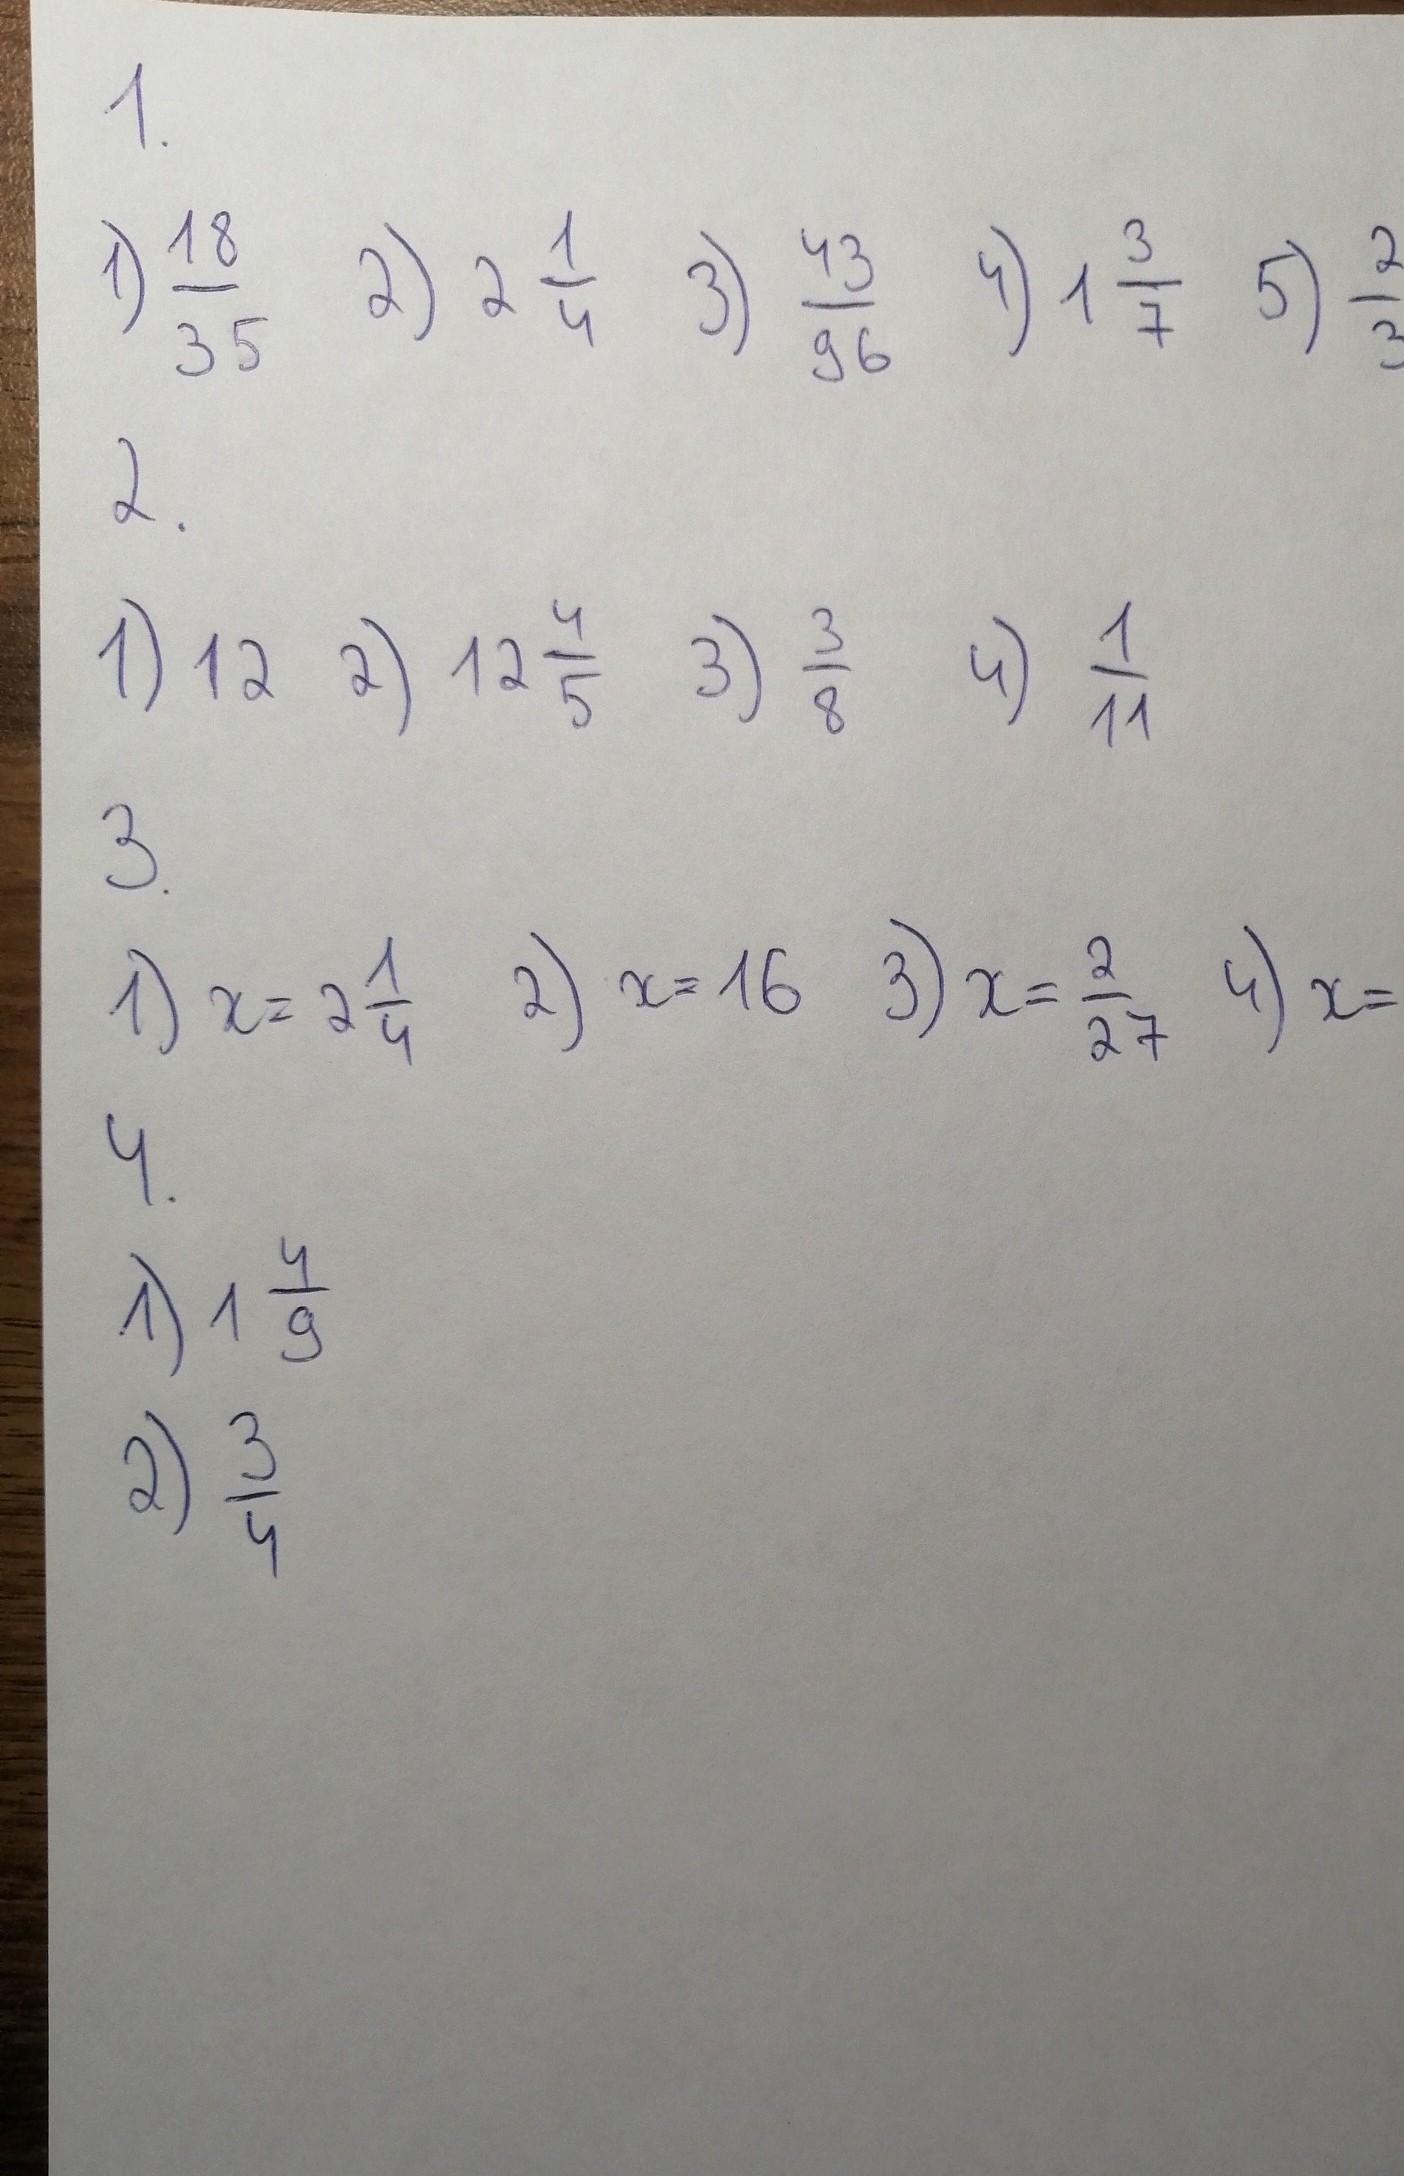 1.
1) 18/35 2) 2 1/4 3) 43/96 4) 1 3/7 5) 2/3
2.
1) 12 2) 12 4/5 3) 3/8 4) 1/11
3.
1) x = 2 1/4 2) x = 16 3) x = 2/27 4) x =
4.
1) 1 4/9
2) 3/4